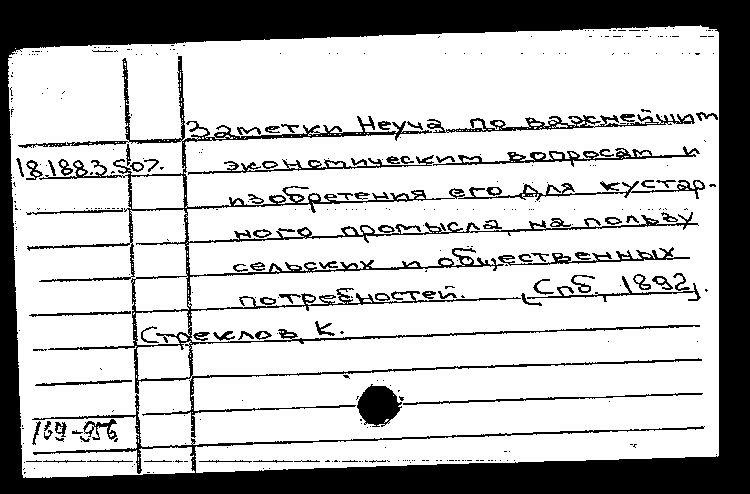 Заметки Неуча по важнейшим
18.188.3.507. экономическим вопросам и
изобретения его для кустар-
ного промысла, на пользу
сельских и общественных
потребностей. [Спб, 1892].
Стреклов, К.
169-956